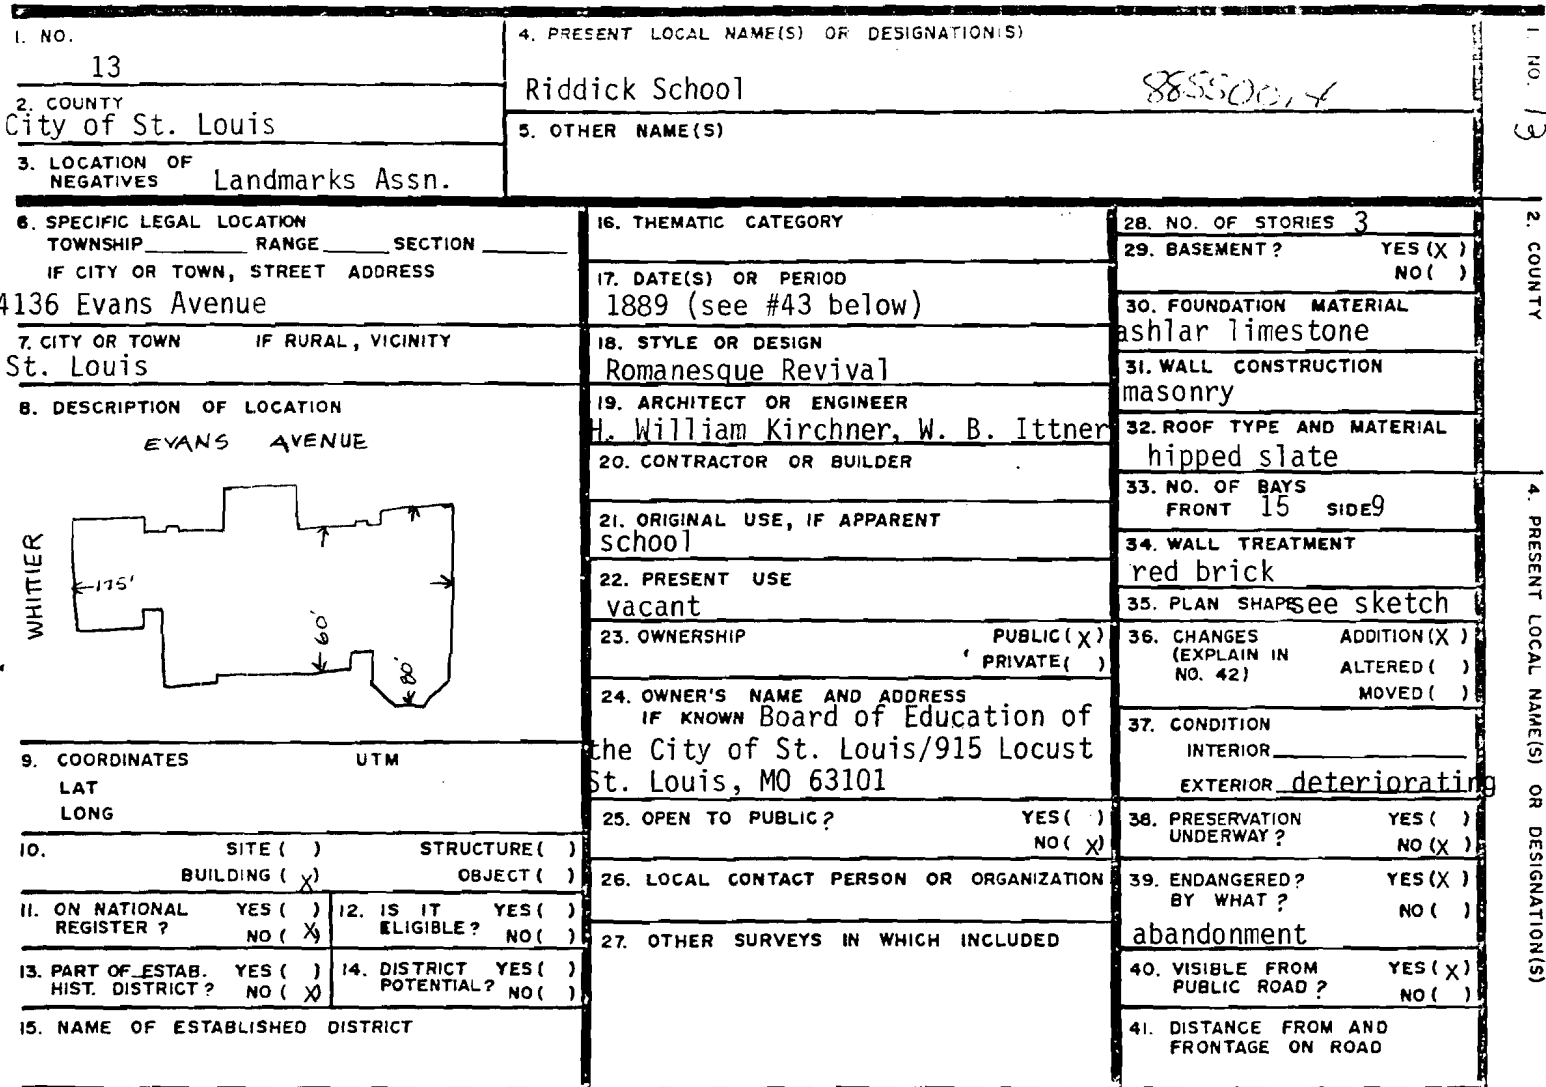 1. NO.
13
2. COUNTY
City of St. Louis
3. LOCATION OF
NEGATIVES Landmarks Assn.
4. PRESENT LOCAL NAME(S) OR DESIGNATION(S)
Riddick School
5. OTHER NAME(S)
6. SPECIFIC LEGAL LOCATION
TOWNSHIP RANGE SECTION
IF CITY OR TOWN, STREET ADDRESS
4136 Evans Avenue
7. CITY OR TOWN IF RURAL, VICINITY
St. Louis
8. DESCRIPTION OF LOCATION
EVANS AVENUE
WHITTIER
175'
60'
80'
9. COORDINATES UTM
LAT
LONG
10. SITE ( ) STRUCTURE ( )
BUILDING (X) OBJECT ( )
11. ON NATIONAL YES ( )
REGISTER ? NO (X)
12. IS IT YES ( )
ELIGIBLE ? NO ( )
13. PART OF ESTAB. YES ( )
HIST. DISTRICT ? NO (X)
14. DISTRICT YES ( )
POTENTIAL ? NO ( )
15. NAME OF ESTABLISHED DISTRICT
16. THEMATIC CATEGORY
17. DATE(S) OR PERIOD
1889 (see #43 below)
18. STYLE OR DESIGN
Romanesque Revival
19. ARCHITECT OR ENGINEER
H. William Kirchner, W. B. Ittner
20. CONTRACTOR OR BUILDER
21. ORIGINAL USE, IF APPARENT
school
22. PRESENT USE
vacant
23. OWNERSHIP PUBLIC (X)
PRIVATE ( )
24. OWNER'S NAME AND ADDRESS
IF KNOWN Board of Education of
the City of St. Louis/915 Locust
St. Louis, MO 63101
25. OPEN TO PUBLIC ? YES ( )
NO (X)
26. LOCAL CONTACT PERSON OR ORGANIZATION
27. OTHER SURVEYS IN WHICH INCLUDED
28. NO. OF STORIES 3
29. BASEMENT ? YES (X)
NO ( )
30. FOUNDATION MATERIAL
ashlar limestone
31. WALL CONSTRUCTION
masonry
32. ROOF TYPE AND MATERIAL
hipped slate
33. NO. OF BAYS
FRONT 15 SIDE 9
34. WALL TREATMENT
red brick
35. PLAN SHAPE see sketch
36. CHANGES ADDITION (X)
(EXPLAIN IN ALTERED ( )
NO. 42) MOVED ( )
37. CONDITION
INTERIOR
EXTERIOR deteriorating
38. PRESERVATION YES ( )
UNDERWAY ? NO (X)
39. ENDANGERED ? YES (X)
BY WHAT ? NO ( )
abandonment
40. VISIBLE FROM YES (X)
PUBLIC ROAD ? NO ( )
41. DISTANCE FROM AND
FRONTAGE ON ROAD
1. NO. 13
2. COUNTY
4. PRESENT LOCAL NAME(S) OR DESIGNATION(S)